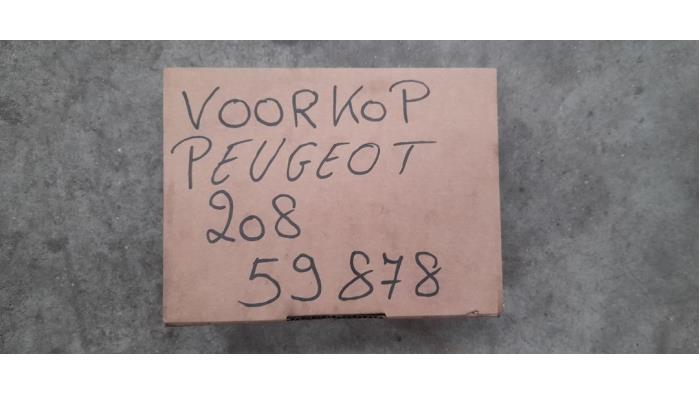 VOORKOP
PEUGEOT
208
59878